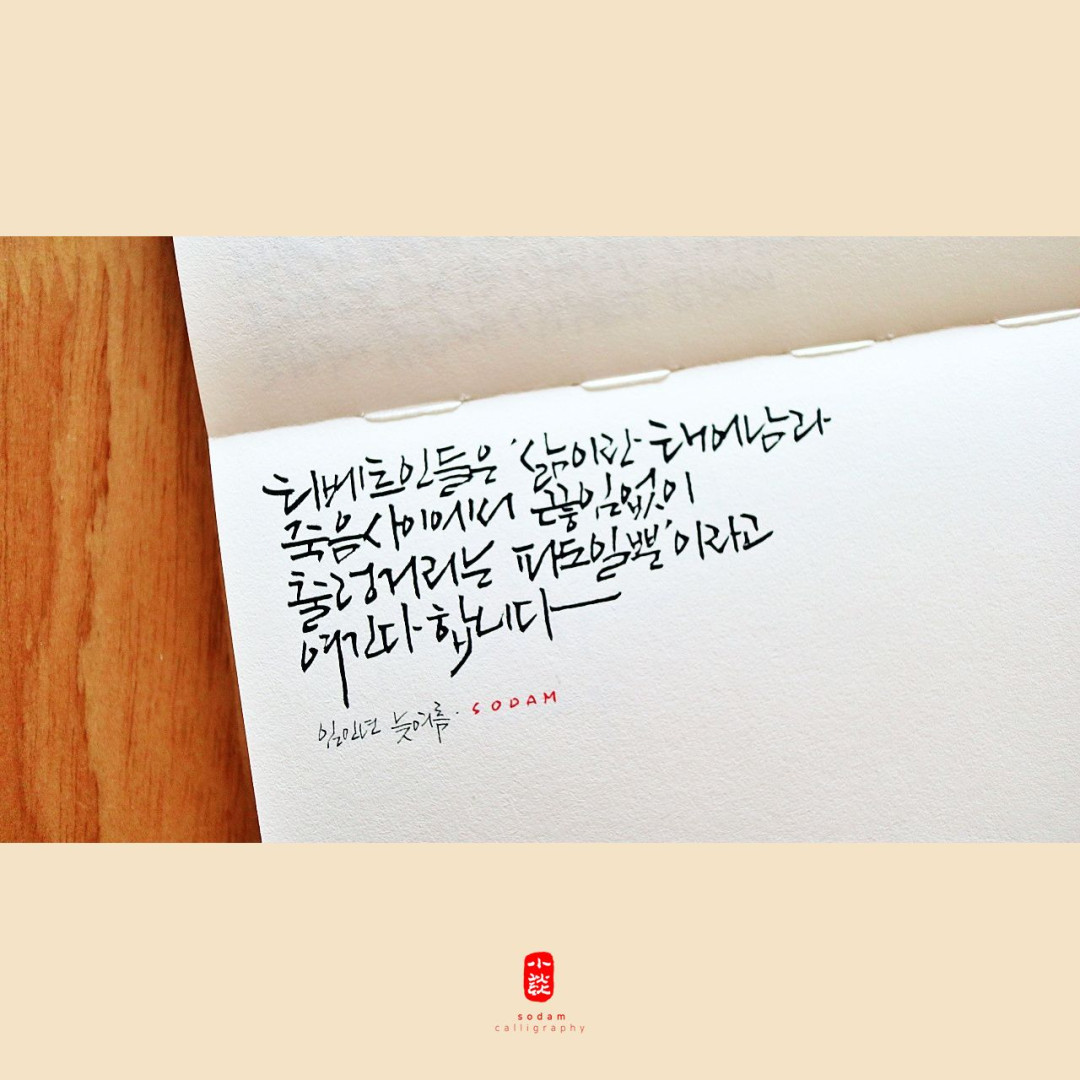 티베트인들은 '삶이란 태어남과
죽음사이에서 끊임없이
출렁거리는 파도일뿐'이라고
여긴다 합니다
임인년 늦여름. SODAM
小談
sodam
calligraphy